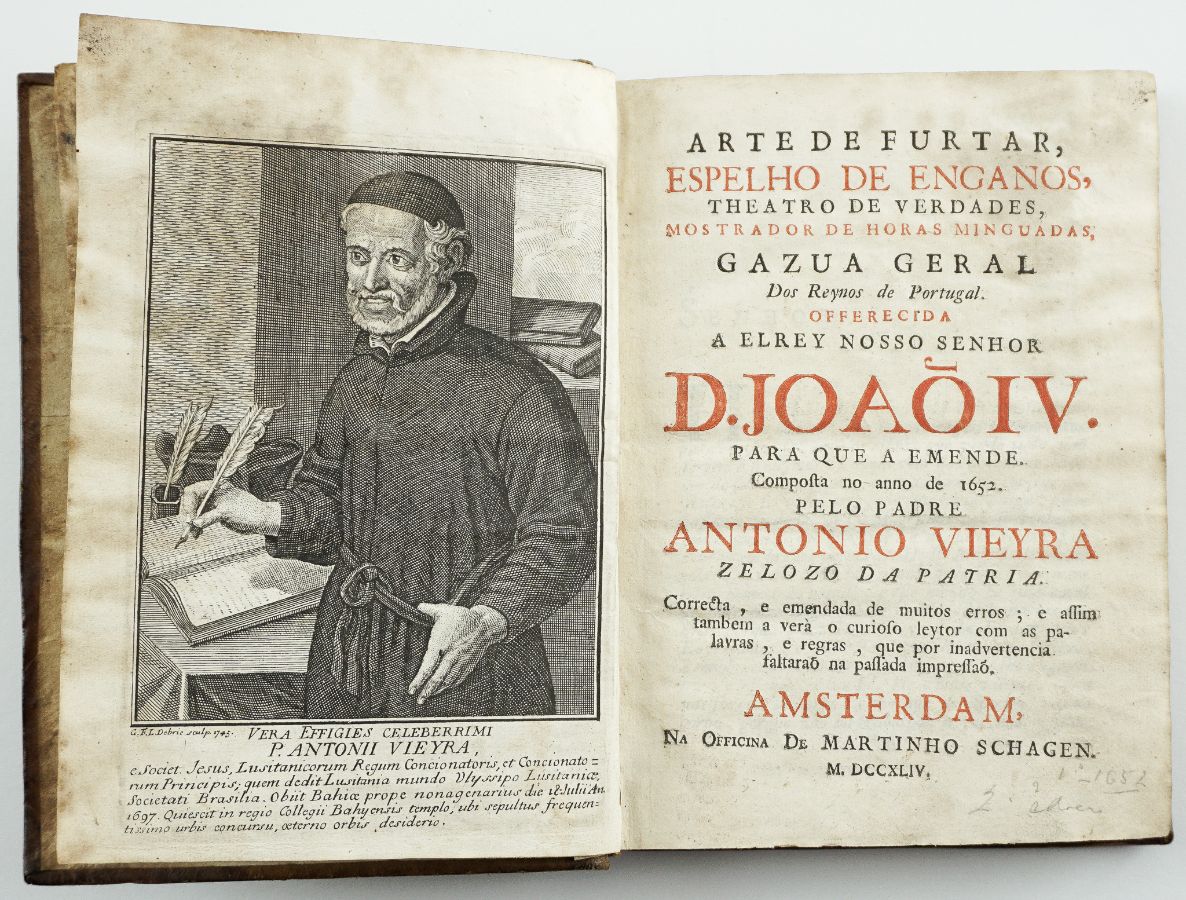 G.F.L. Debrie sculp. 1745.
VERA EFFIGIES CELEBERRIMI
P. ANTONII VIEYRA,
e Societ. Jesus, Lusitanicorum Regum Concionatoris, et Concionato=
rum Principis; quem dedit Lusitania mundo Vlyssipo Lusitaniæ,
Societati Brasilia. Obiit Bahiæ prope nonagenarius die 18 Julii An.
1697. Quiescit in regio Collegii Bahyensis templo, ubi sepultus frequen-
tissimo urbis concursu, æterno orbis desiderio.
ARTE DE FURTAR,
ESPELHO DE ENGANOS,
THEATRO DE VERDADES,
MOSTRADOR DE HORAS MINGUADAS,
GAZUA GERAL
Dos Reynos de Portugal.
OFFERECIDA
A ELREY NOSSO SENHOR
D. JOAÕ IV.
PARA QUE A EMENDE.
Compoſta no anno de 1652.
PELO PADRE
ANTONIO VIEYRA
ZELOZO DA PATRIA.
Correcta, e emendada de muitos erros; e aſſim
tambem a verà o curioſo leytor com as pa-
lavras, e regras, que por inadvertencia
faltaraõ na paſſada impreſſaõ.
AMSTERDAM,
NA OFFICINA DE MARTINHO SCHAGEN.
M. DCCXLIV.